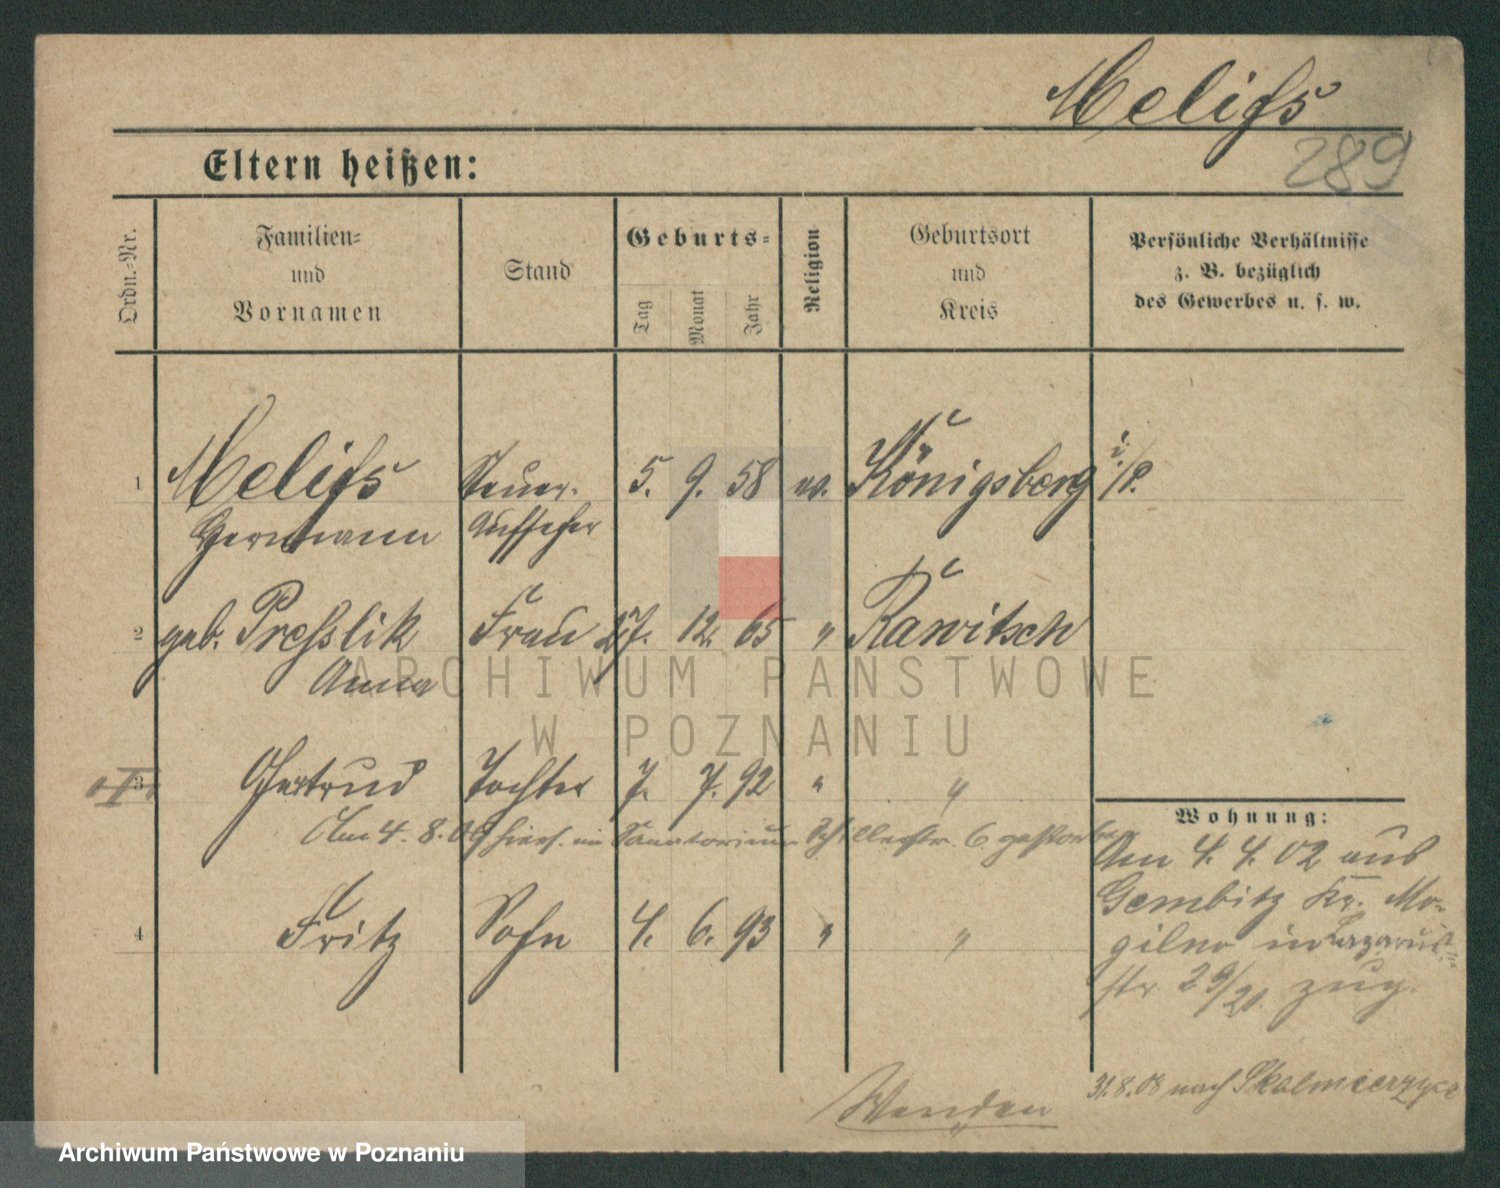 Melifs
289
Eltern heißen:
Ordn.-Nr.
Familien-
und
Vornamen
Stand
Geburts-
Tag
Monat
Jahr
Religion
Geburtsort
und
Kreis
Persönliche Verhältnisse
z. B. bezüglich
des Gewerbes u. s. w.
1 Melifs Steuer- 5. 9. 58 ev. Königsberg i./P.
Hermann Aufseher
2 geb. Presslik Frau 27. 12. 65 " Rawitsch
Anna
3 Gertrud Tochter 7. 7. 92 " "
Am 4. 8. 09 hiers. im Sanatorium Schillerstr. 6 gestorben
4 Fritz Sohn 4. 6. 93 " "
Wohnung:
Am 4. 4. 02 aus
Gembitz Kr. Mo-
gilno in Lazarus-
str. 29/20. zug.
31.8.08 nach Skalmierzyce
Wenden
ARCHIWUM PAŃSTWOWE
W POZNANIU
Archiwum Państwowe w Poznaniu